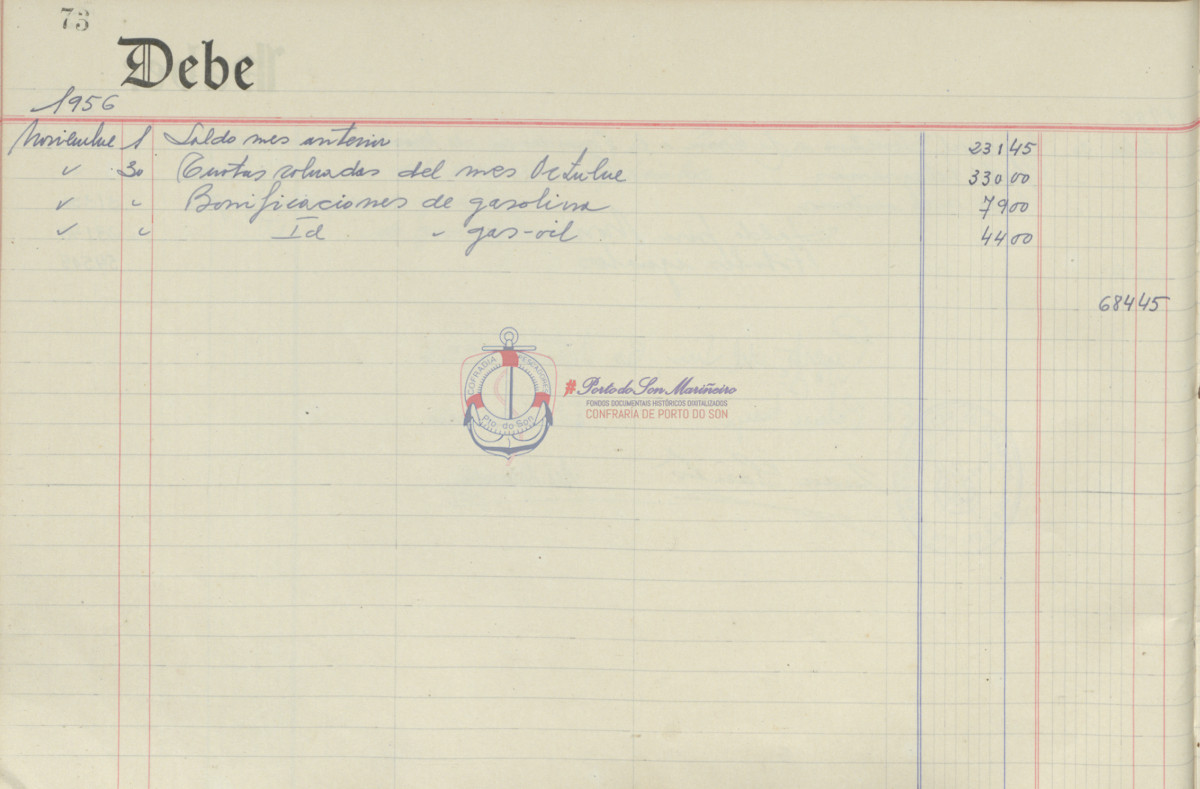 73
Debe
1956
Noviembre 1 Saldo mes anterior 231 45
✓ 30 Cuotas cobradas del mes Octubre 330 00
✓ " Bonificaciones de gasolina 79 00
✓ " Id " gas-oil 44 00
684 45
COFRADIA PESCADORES
Pto. do Son
#Porto do Son Mariñeiro
FONDOS DOCUMENTAIS HISTÓRICOS DIXITALIZADOS
CONFRARÍA DE PORTO DO SON